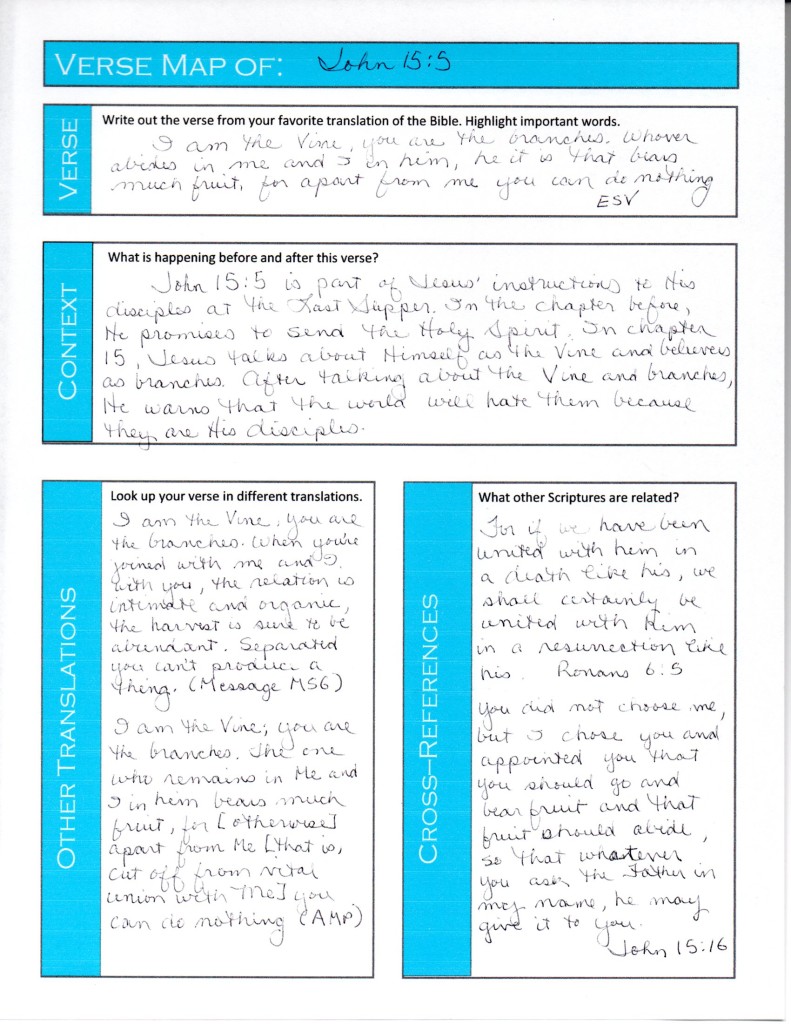 VERSE MAP OF: John 15:5
VERSE
Write out the verse from your favorite translation of the Bible. Highlight important words.
I am the Vine, you are the branches. Whover
abides in me and I in him, he it is that bears
much fruit, for apart from me you can do nothing
ESV
CONTEXT
What is happening before and after this verse?
John 15:5 is part of Jesus' instructions to His
disciples at the Last Supper. In the chapter before,
He promises to send the Holy Spirit. In chapter
15, Jesus talks about Himself as the Vine and believers
as branches. After talking about the Vine and branches,
He warns that the world will hate them because
they are His disciples.
OTHER TRANSLATIONS
Look up your verse in different translations.
I am the Vine, you are
the branches. When you're
joined with me and I
with you, the relation is
intimate and organic,
the harvest is sure to be
abundant. Separated
you can't produce a
thing. (Message MSG)
I am the Vine; you are
the branches. The one
who remains in Me and
I in him bears much
fruit, for [otherwise]
apart from Me [that is,
cut off from vital
union with Me] you
can do nothing (AMP)
CROSS—REFERENCES
What other Scriptures are related?
For if we have been
united with him in
a death like his, we
shall certainly be
united with Him
in a resurrection like
his. Romans 6:5
You did not choose me,
but I chose you and
appointed you that
you should go and
bear fruit and that
fruit should abide,
so that whatever
you ask the Father in
my name, he may
give it to you.
John 15:16